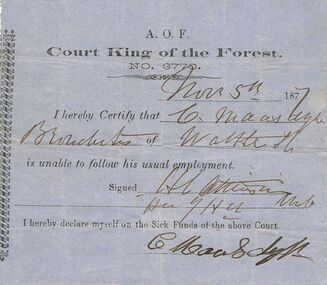 A. O. F.
Court King of the Forest.
NO. 6770.
Nov 5th 1877
I hereby Certify that C. Maasdyk
Bronchitis of
is unable to follow his usual employment.
Signed
I hereby declare myself on the Sick Funds of the above Court.
C Maasdyk